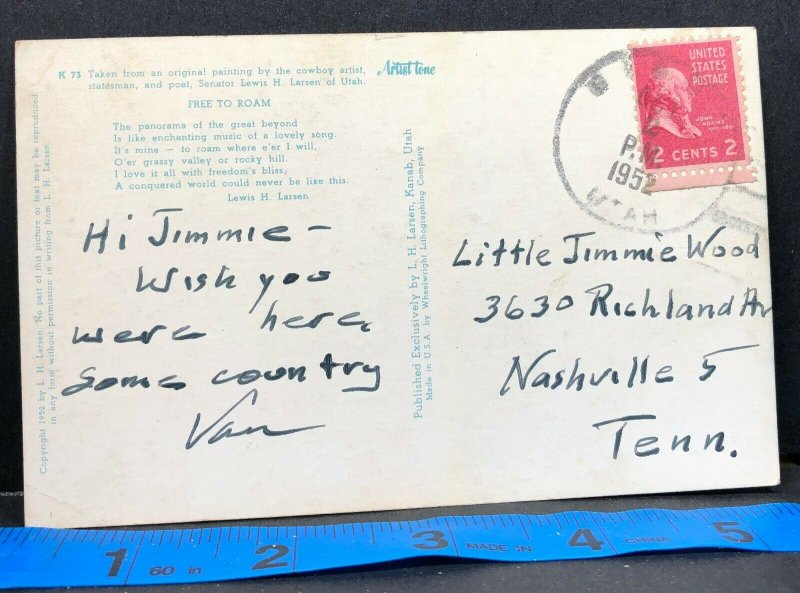 K 73 Taken from an original painting by the cowboy artist,
statesman, and poet, Senator Lewis H. Larsen of Utah.
Artist tone
FREE TO ROAM
The panorama of the great beyond
Is like enchanting music of a lovely song.
It's mine — to roam where e'er I will,
O'er grassy valley or rocky hill.
I love it all with freedom's bliss,
A conquered world could never be like this.
Lewis H. Larsen
Copyright 1952 by L. H. Larsen. No part of this picture or text may be reproduced
in any form without permission in writing from L. H. Larsen.
Hi Jimmie –
Wish you
were here,
Some country
Van
Published Exclusively by L. H. Larsen, Kanab, Utah
Made in U.S.A. by Wheelwright Lithographing Company
UNITED
STATES
POSTAGE
JOHN
ADAMS
2 CENTS 2
P.M.
1952
UTAH
Little Jimmie Wood
3630 Richland Av
Nashville 5
Tenn.
1 60 in 2 3 MADE IN 4 CHINA 5